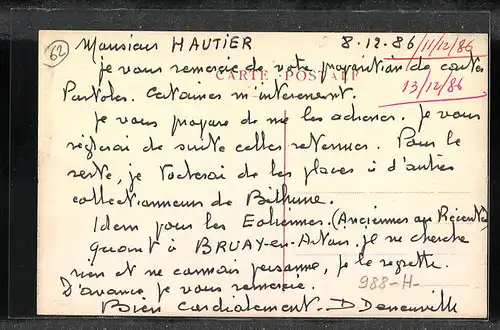 62
Monsieur HAUTIER 8.12.86 / 11/12/86
je vous remercie de votre proposition de cartes
CARTE POSTALE
Postales. Certaines m'interessent. 13/12/86
je vous propose de me les adresser. je vous
réglerai de suite celles retenues. Pour le
reste, je tacherai de les placer à d'autres
collectionneurs de Béthune.
Idem pour les Ediciones. (Anciennes ou Récentes)
quant à BRUAY-en-Artois. je ne cherche
rien et ne connais personne, je le regrette.
988-H-
D'avance je vous remercie.
Bien cordialement. D Deneuville